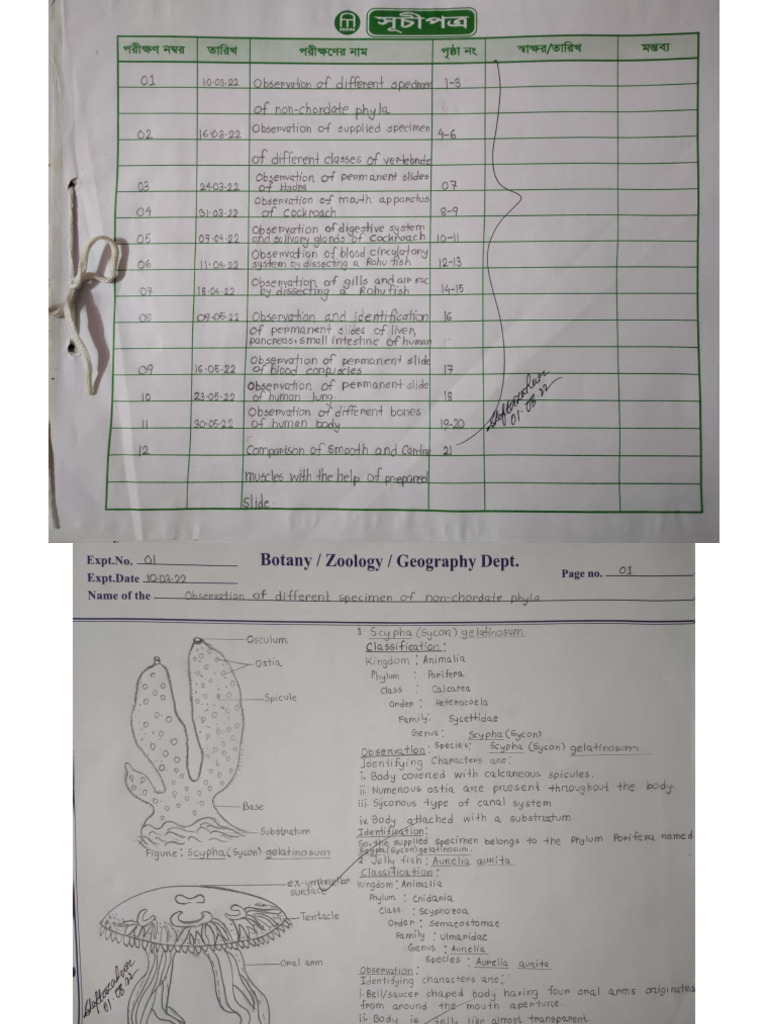 সূচীপত্র
পরীক্ষণ নম্বর তারিখ পরীক্ষণের নাম পৃষ্ঠা নং স্বাক্ষর/তারিখ মন্তব্য
01 10·03·22 Observation of different specimen 1-3
of non-chordate phyla
02 16·03·22 Observation of supplied specimen 4-6
of different classes of vertebrate
03 24·03·22 Observation of permanent slides 07
of Hydra
04 31·03·22 Observation of mouth apparatus 8-9
of Cockroach
05 Observation of digestive system 10-11
and salivary glands of Cockroach
06 11·04·22 Observation of blood circulatory 12-13
system by dissecting a Rohu fish
07 18·04·22 Observation of gills and air sac 14-15
by dissecting a Rohu fish
08 09·05·22 Observation and identification 16
of permanent slides of liver,
pancreas, small intestine of human
09 16·05·22 Observation of permanent slide 17
of blood corpuscles
10 23·05·22 Observation of permanent slide 18
of human lung
11 30·05·22 Observation of different bones 19-20
of human body
12 Comparison of smooth and Cardiac 21
muscles with the help of prepared
slide
01·08·22
Expt.No. 01
Botany / Zoology / Geography Dept.
Expt.Date 10·03·22
Page no. 01
Name of the Observation of different specimen of non-chordate phyla
Osculum
Ostia
Spicule
Base
Substratum
Figure: Scypha (Sycon) gelatinosum
1 Scypha (Sycon) gelatinosum
Classification:
Kingdom: Animalia
Phylum : Porifera
Class : Calcarea
Order : Heterocoela
Family: Sycettidae
Genus: Scypha (Sycon)
Observation: Species: Scypha (Sycon) gelatinosum
Identifying Characters are:
i. Body covered with calcareous spicules.
ii. Numerous ostia are present throughout the body.
iii. Syconous type of canal system
iv. Body attached with a substratum
Identification:
So, the supplied specimen belongs to the Phylum Porifera named
Scypha (Sycon) gelatinosum.
2 Jelly fish: Aurelia aurita
Classification:
Kingdom: Animalia
Phylum : Cnidaria
Class : Scyphozoa
Order : Semaeostomae
Family : Ulmaridae
Genus : Aurelia
Species : Aurelia aurita
Observation:
Identifying characters are:
i. Bell/saucer shaped body having four oral arms originated
from around the mouth aperture.
ii. Body is Jelly like almost transparent.
ex-umbrellar
surface
Tentacle
Oral arm
01·08·22